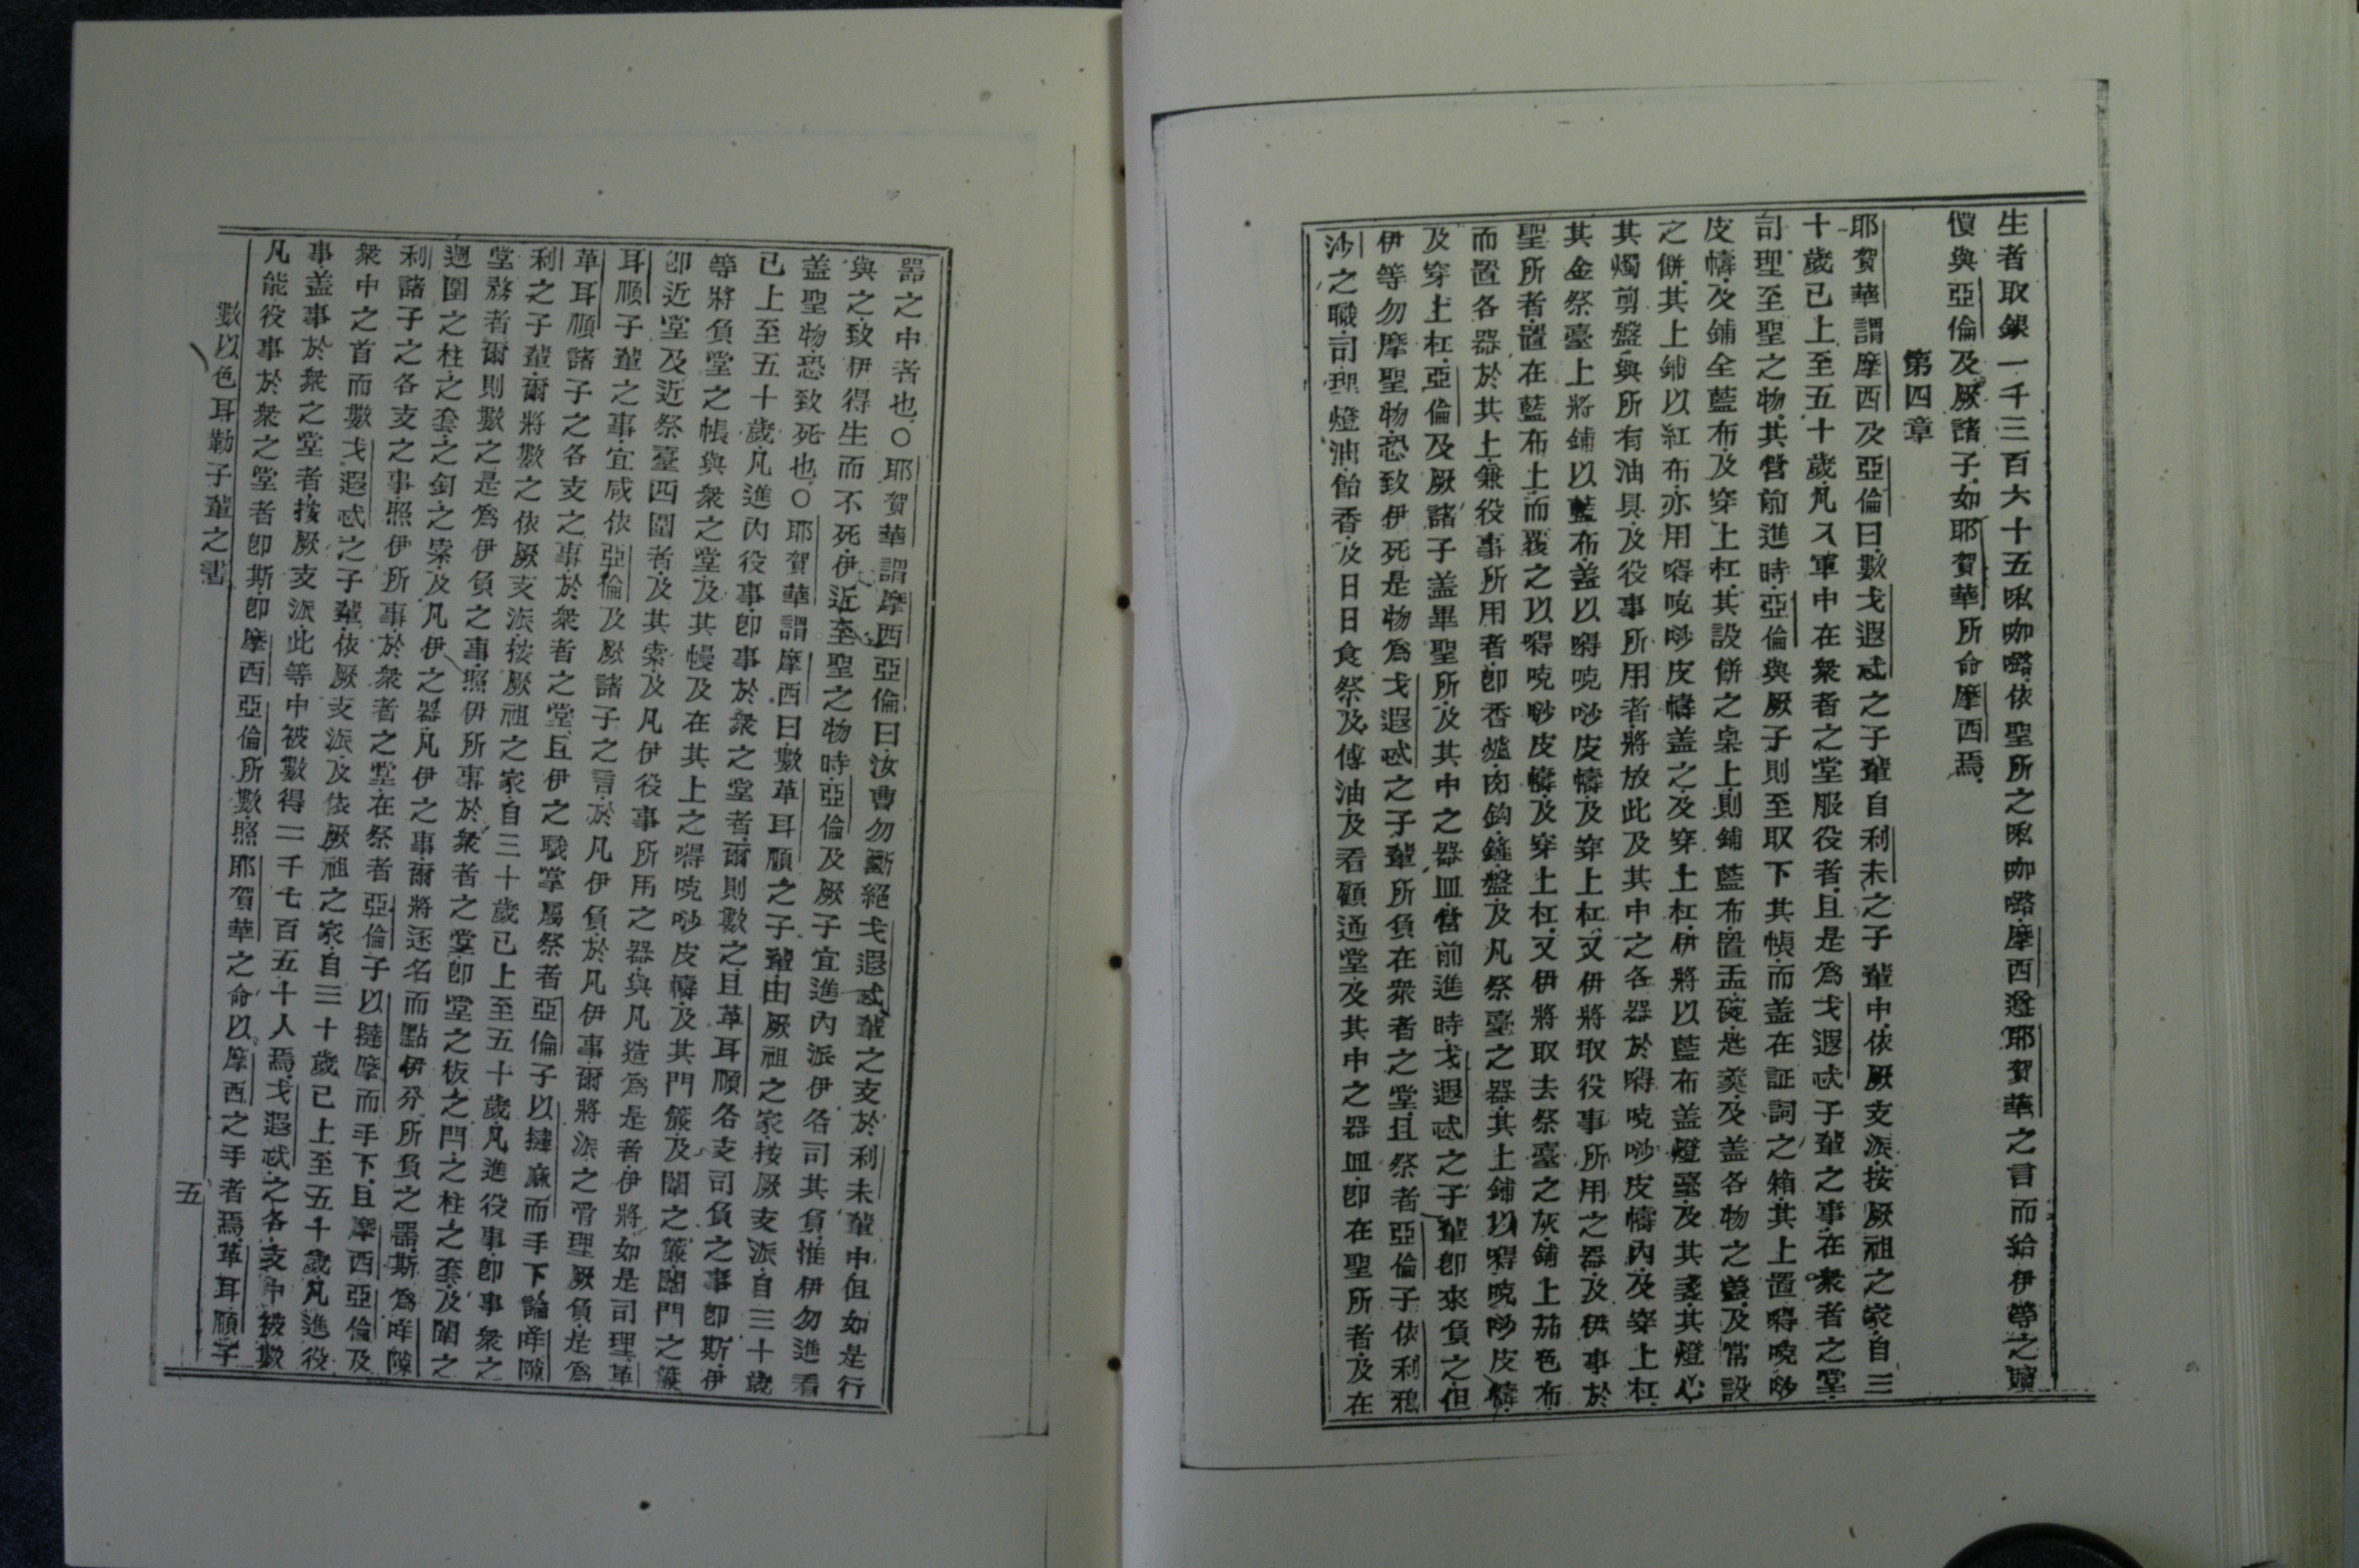 生者取銀一千三百六十五㖠咖嚕依聖所之㖠咖嚕摩西遵耶賀華之言而給伊等之贖
價與亞倫及厥諸子如耶賀華所命摩西焉
第四章
耶賀華謂摩西及亞倫曰數戈遐忒之子輩自利未之子輩中依厥支派按厥祖之家自三
十歲已上至五十歲凡入軍中在衆者之堂服役者且是為戈遐忒子輩之事在衆者之堂
司理至聖之物其營前進時亞倫與厥子則至取下其幀而盖在証詞之箱其上置㘔嘵唦
皮幬及鋪全藍布及穿上杠其設餅之桌上則鋪藍布置盂碗匙奠及盖各物之盖及常設
之餅其上鋪以紅布亦用㘔嘵唦皮幬盖之及穿上杠伊將以藍布盖燈臺及其盞其燈心
其燭剪盤與所有油具及役事所用者將放此及其中之各器於㘔嘵唦皮幬內及穿上杠
其金祭臺上將鋪以藍布盖以㘔嘵唦皮幬及穿上杠又伊將取役事所用之器及供事於
聖所者置在藍布上而覆之以㘔嘵唦皮幬及穿上杠又伊將取去祭臺之灰鋪上茄色布
而置各器於其上兼役事所用者卽香爐肉鈎鏟盤及凡祭臺之器其上鋪以㘔嘵唦皮幬
及穿上杠亞倫及厥諸子盖畢聖所及其中之器皿當前進時戈遐忒之子輩卽來負之但
伊等勿摩聖物恐致伊死是物為戈遐忒之子輩所負在衆者之堂且祭者亞倫子依利鴉
沙之職司理燈油飴香及日日食祭及傅油及看顧通堂及其中之器皿卽在聖所者及在
器之中者也○耶賀華謂摩西亞倫曰汝曹勿斷絕戈遐忒輩之支於利未輩中但如是行
與之致伊得生而不死伊近至聖之物時亞倫及厥子宜進內派伊各司其負惟伊勿進看
盖聖物恐致死也○耶賀華謂摩西曰數革耳順之子輩由厥祖之家按厥支派自三十歲
已上至五十歲凡進內役事卽事於衆之堂者爾則數之且革耳順各支司負之事卽斯伊
等將負堂之帳與衆之堂及其幔及在其上之㘔嘵唦皮幬及其門簾及闈之簾闈門之簾
卽近堂及近祭臺四圍者及其索及凡伊役事所用之器與凡造為是者伊將如是司理革
耳順子輩之事宜咸依亞倫及厥諸子之言於凡伊負於凡伊事爾將派之管理厥負是為
革耳順諸子之各支之事於衆者之堂且伊之職掌屬祭者亞倫子以撻麻而手下論咩隙
利之子輩爾將數之依厥支派按厥祖之家自三十歲已上至五十歲凡進役事卽事衆之
堂務者爾則數之是為伊負之事照伊所事於衆者之堂卽堂之板之閂之柱之套及闈之
週圍之柱之套之釘之索及凡伊之器凡伊之事爾將逐名而點伊分所負之器斯為咩隙
利諸子之各支之事照伊所事於衆者之堂在祭者亞倫子以撻摩而手下且摩西亞倫及
衆中之首而數戈遐忒之子輩依厥支派及依厥祖之家自三十歲已上至五十歲凡進役
事盖事於衆之堂者按厥支派此等中被數得二千七百五十人焉戈遐忒之各支中被數
凡能役事於衆之堂者卽斯卽摩西亞倫所數照耶賀華之命以摩西之手者焉革耳順子
數以色耳勒子輩之書
五